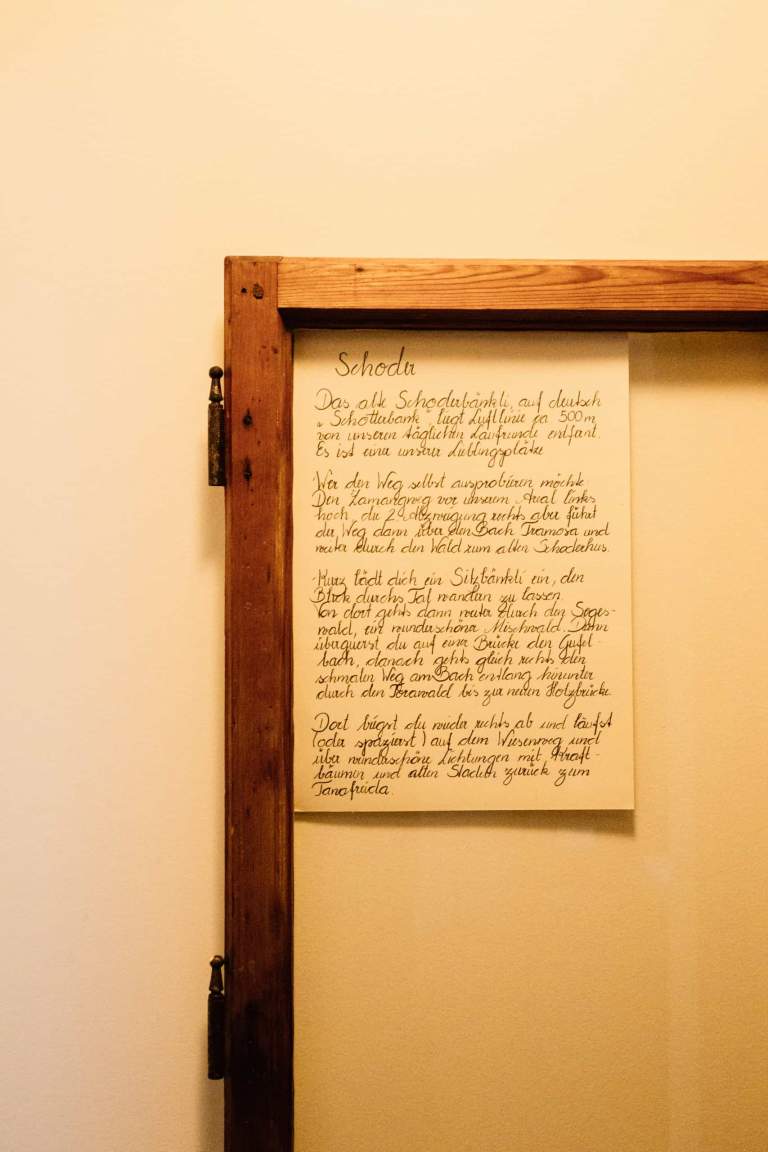 Schoder
Das alte Schoderbänkli, auf deutsch
„Schotterbank“, liegt Luftlinie ca 500m
von unseren täglichen Laufrunde entfernt.
Es ist einer unserer Lieblingsplätze
Wer den Weg selbst ausprobieren möchte
Den Zamangweg vor unserem Areal links
hoch, die 2. Abzweigung rechts aber führt
der Weg dann über den Bach Tramosa und
weiter durch den Wald zum alten Schoderhus.
Kurz lädt dich ein Sitzbänkli ein, den
Blick durchs Tal wandern zu lassen.
Von dort gehts dann weiter durch den
wald, ein wunderschöner Mischwald. Dann
überquerst du auf einer Brücke den Gufel-
bach, danach gehts gleich rechts den
schmalen Weg am Bach entlang hinunter
durch den bis zur neuen Holzbrücke.
Dort biegst du wieder rechts ab und läufst
(oder spazierst) auf dem Wiesenweg und
über wunderschöne Lichtungen mit Kraft-
bäumen und alten Stadeln zurück zum
Tanafreida.